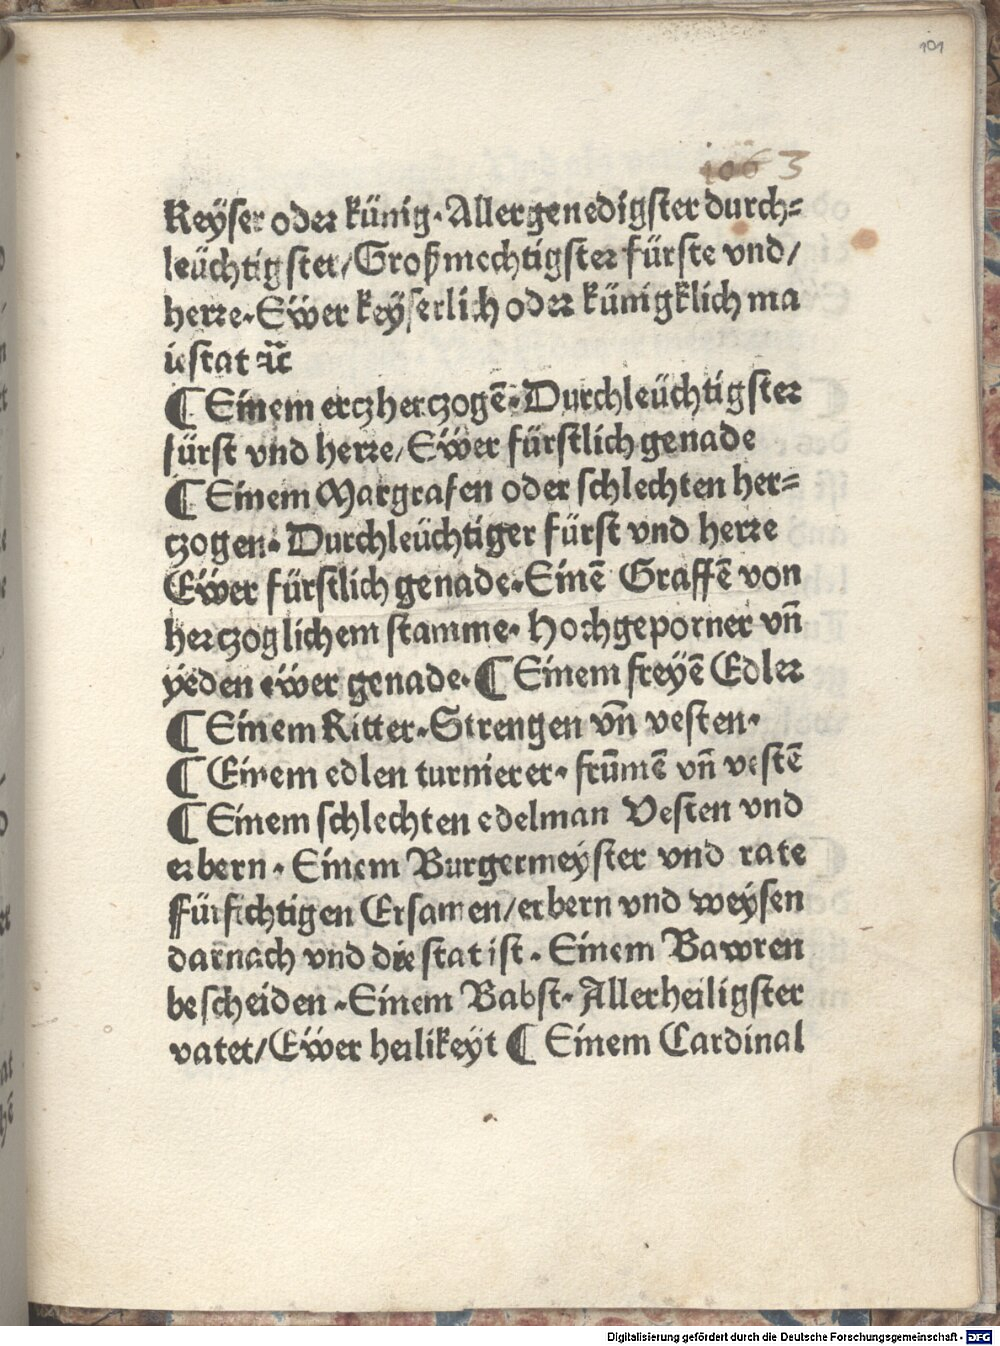 101
1063
Keyser oder künig · Allergenedigster durch⸗
leüchtigster/ Großmechtigster fürste vnd/
herre · Ewer keyserlich oder künigklich ma
iestat ꝛc̃
¶ Einem ertzhertzogē · Durchleüchtigster
fürst vnd herre/ Ewer fürstlich genade
¶ Einem Margrafen oder schlechten her⸗
tzogen · Durchleüchtiger fürst vnd herre
Ewer fürstlich genade · Einē Graffē von
hertzoglichem stamme · Hochgeporner vn̄
yeden ewer genade · ¶ Einem freyē Edler
¶ Einem Ritter · Strengen vn̄ vesten ·
¶ Einem edlen turnierer · frūmē vn̄ vestē
¶ Einem schlechten edelman Vesten vnd
erbern · Einem Burgermeyster vnd rate
Fürsichtigen Ersamen/ erbern vnd weysen
darnach vnd die stat ist · Einem Bawren
bescheiden · Einem Babst · Allerheiligster
vatet/ Ewer heilikeyt ¶ Einem Cardinal
Digitalisierung gefördert durch die Deutsche Forschungsgemeinschaft - DFG